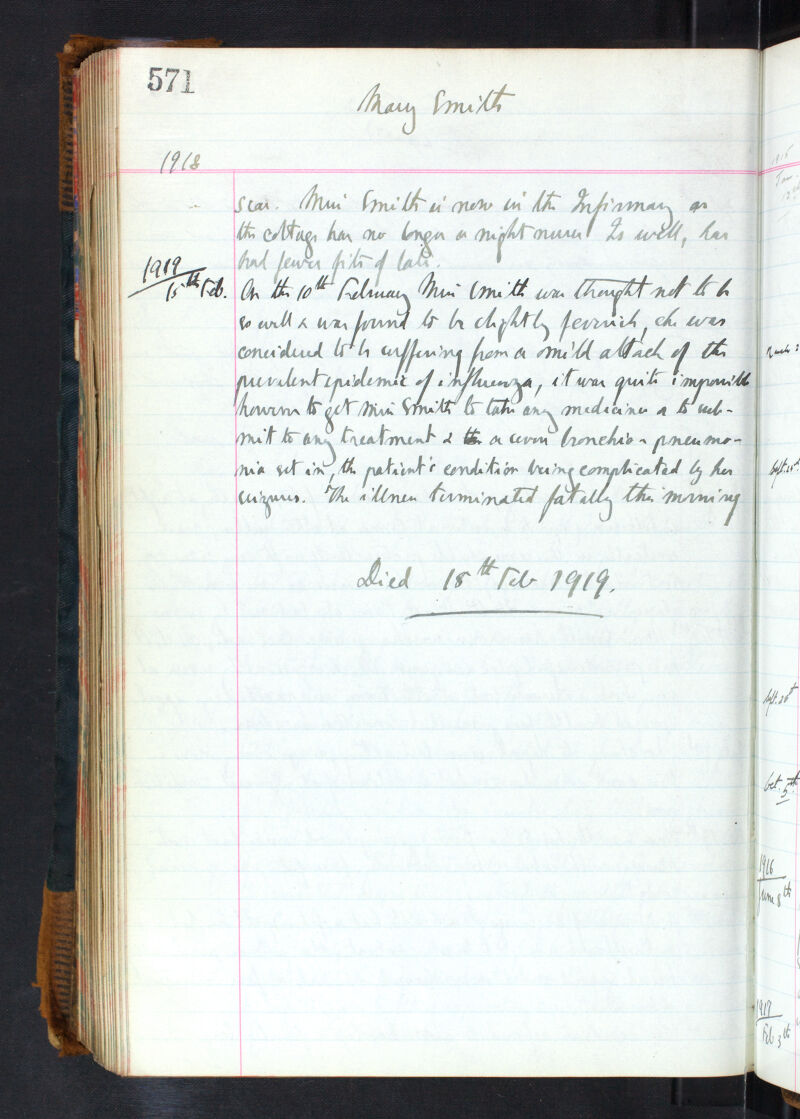 571
Mary Smith
1918
scar. Miss Smith is now in the Infirmary as
the cottage has no longer a night nurse Is well, has
had fewer fits of late.
1919
15th Feb. On the 10th February Miss Smith was thought not to be
so well & was found to be slightly feverish, she was
considered to be suffering from a mild attack of the
prevalent epidemic of influenza, it was quite impossible
however to get Miss Smith to take any medicines or to sub-
mit to any treatment & a severe broncho-pneumo-
nia set in, the patient's condition being complicated by her
seizures. The illness terminated fatally this morning
Died 15th Feb 1919.
Sept. 20th
Oct. 5th
1916
June 8th
1917
Feb 3th